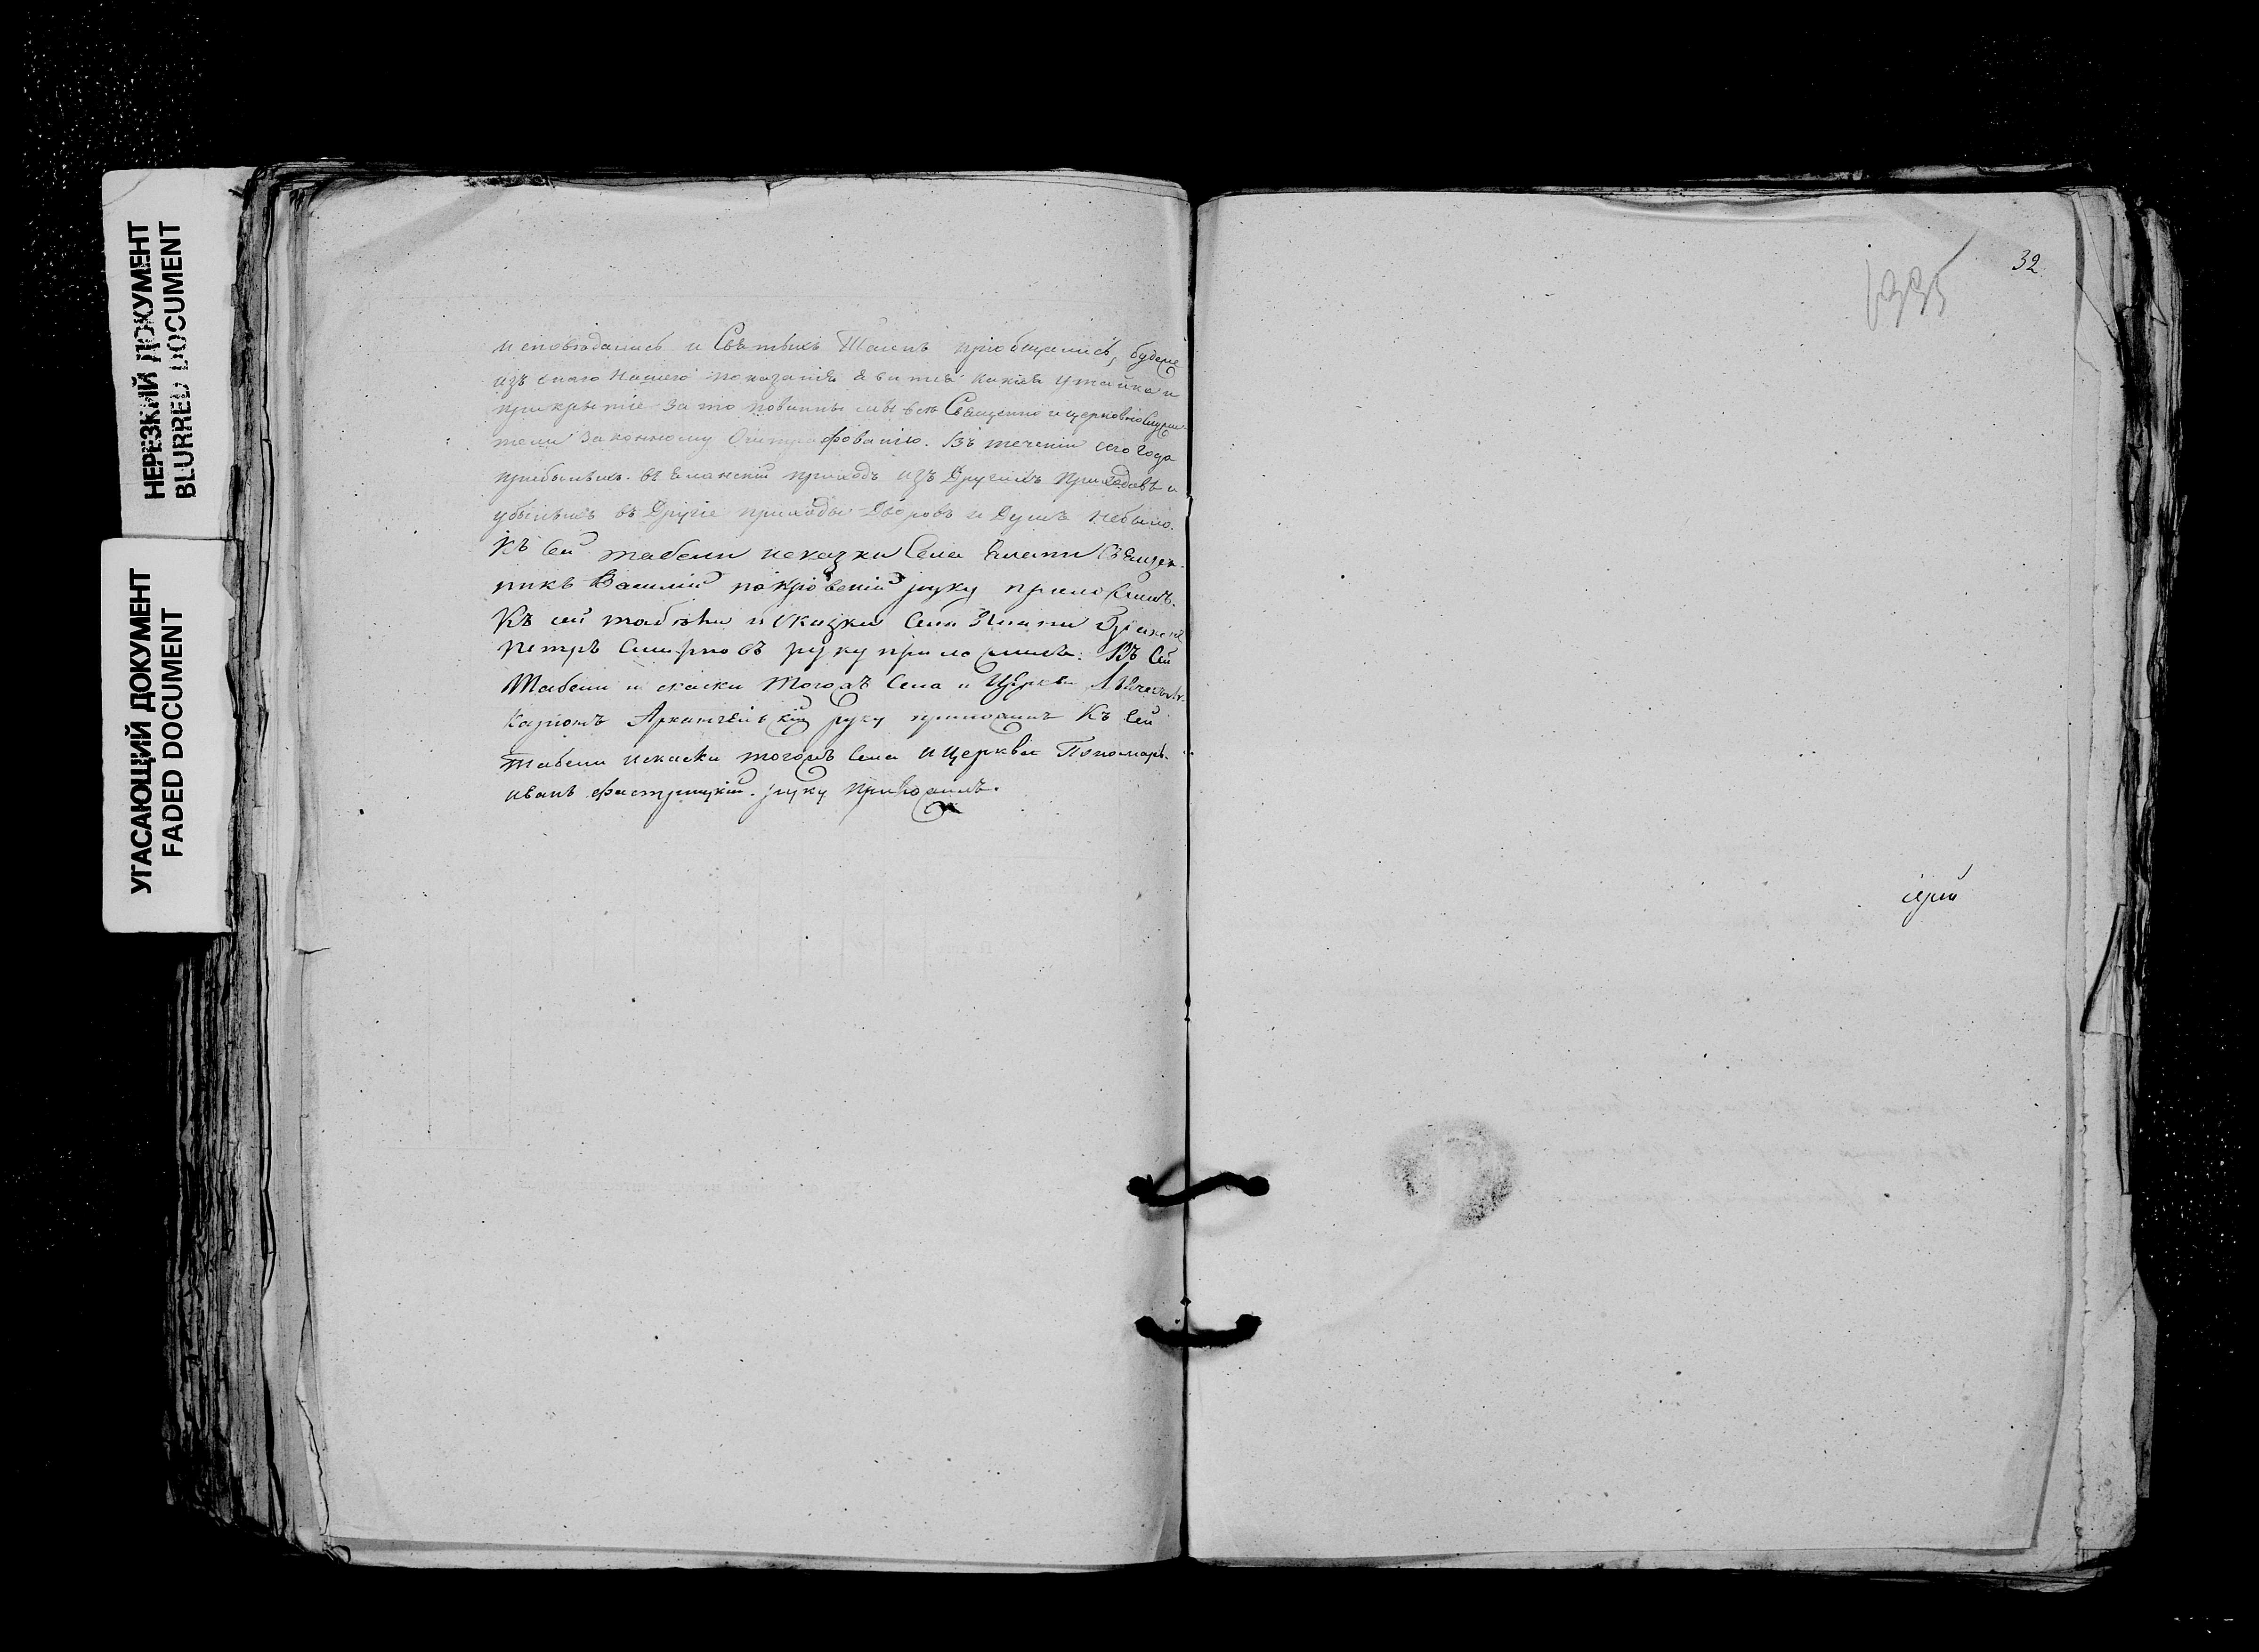 НЕРЕЗКИЙ ДОКУМЕНТ
BLURRED DOCUMENT
УГАСАЮЩИЙ ДОКУМЕНТ
FADED DOCUMENT
исповѣдались и Святыхъ Таинъ приобщались, будеже
изъ сего нашего показанія явится какая утайка и
прикрытіе за то повинны мы всѣ Священно и церковно
законному Оштрафованію. Въ теченіи сего года
прибылыхъ въ приходъ изъ Другихъ приходовъ и
убылыхъ въ Другіе приходы Дворовъ и Душъ небыло.
Къ сей табели искаски Села Елати Священ-
никъ Василій руку приложилъ.
Къ сей табели искаски Села Елати
Петръ Смирновъ руку приложилъ. Въ сей
Табели и скаски тогожъ Села и Церкви
Архангельскій руку приложилъ Къ сей
табели искаски тогожъ Села и Церкви Пономарь
иванъ руку приложилъ.
32
ерей